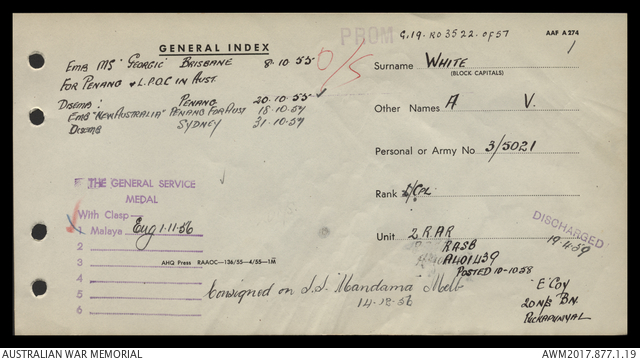 PROM
G.19. RO 3522. OF 57
AAF A 274
1
GENERAL INDEX
EMB MS "GEORGIC" BRISBANE 8-10-55
FOR PENANG & L.P.O.C IN AUST.
O/S
DISEMB: PENANG 20-10-55 ✓
EMB "NEW AUSTRALIA" PENANG FOR AUST 18-10-57
DISEMB SYDNEY 31-10-57
Surname WHITE
(BLOCK CAPITALS)
Other Names A V.
Personal or Army No 3/5021
Rank L/CPL
Unit 2 RAR
RASB
A401439
POSTED 10-10-58
DISCHARGED
19-4-59
"E" COY
20 N/S BN.
PUCKAPUNYAL
THE GENERAL SERVICE
MEDAL
With Clasp
1 Malaya Eng 1-11-56
2
3
4
5
6
AHQ Press RAAOC—136/55—4/55—1M
Consigned on S.S. "Mandama" Melb
14-12-56
AUSTRALIAN WAR MEMORIAL
AWM2017.877.1.19